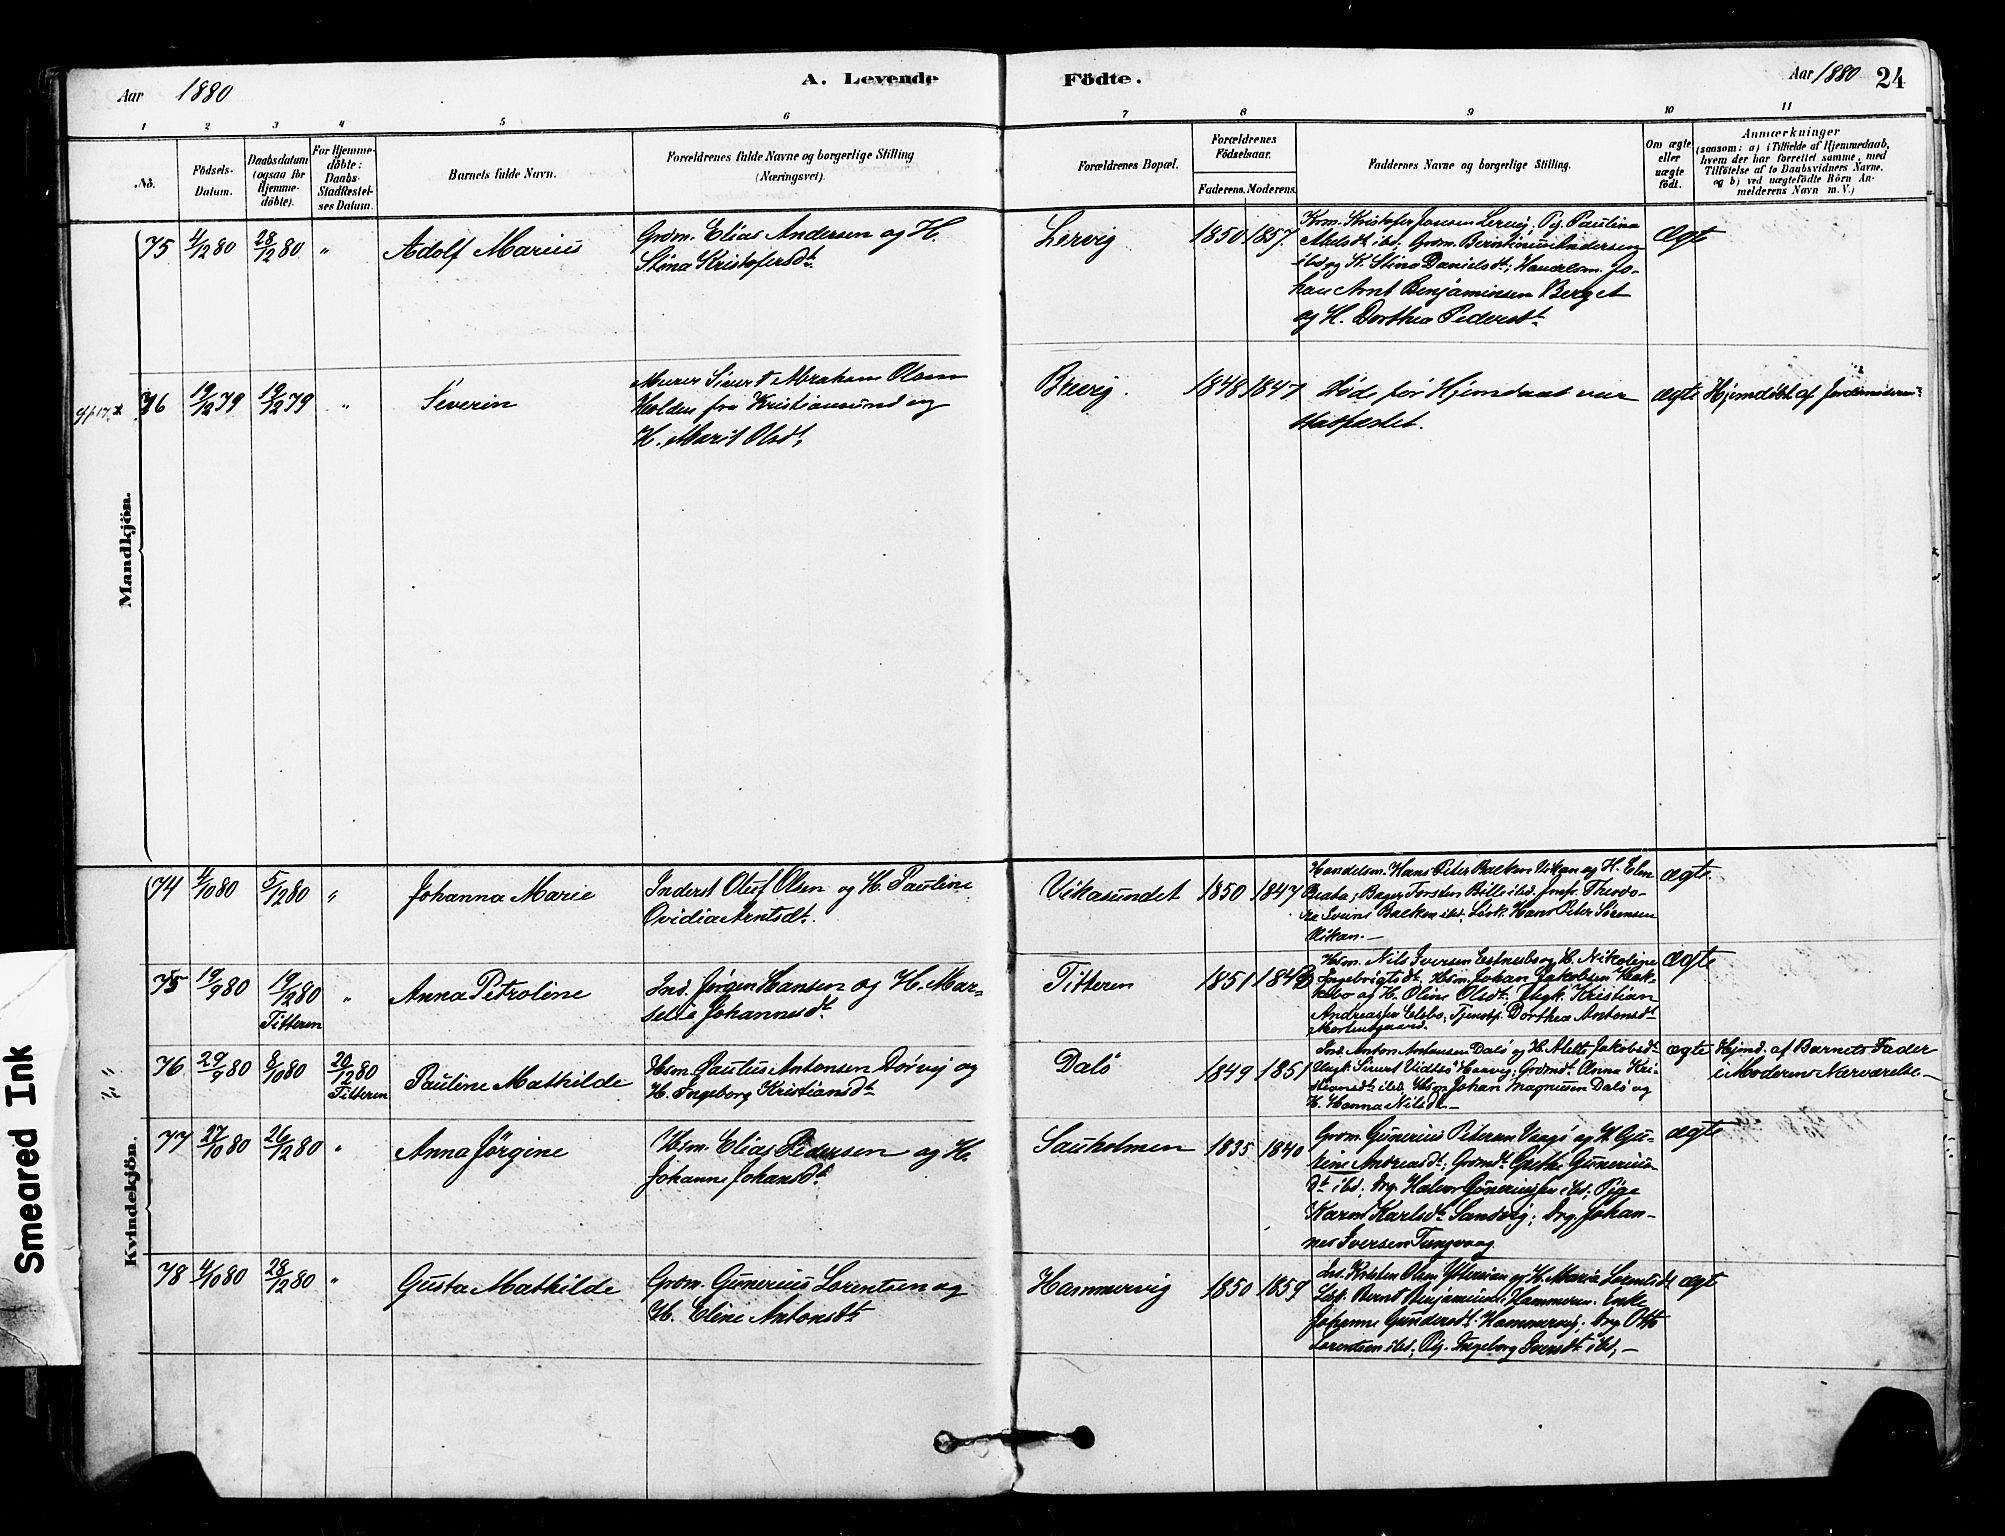 Aar 1880
A. Levende
Födte.
Aar 1880 24
1 2 3 4 5 6 7 8 9 10 11
No.
Födsels-
Datum.
Daabsdatum
(ogsaa for
Hjemme-
döbte).
For Hjemme-
döbte:
Daabs-
Stadfæstel-
ses Datum.
Barnets fulde Navn.
Forældrenes fulde Navne og borgerlige Stilling
(Næringsvei).
Forældrenes Bopæl.
Forældrenes
Födselsaar.
Faderens. Moderens.
Faddernes Navne og borgerlige Stilling.
Om ægte
eller
uægte
födt.
Anmærkninger
(saasom: a) i Tilfælde af Hjemmedaab,
hvem der har forrettet samme, med
Tilföielse af to Daabsvidners Navne,
og b) ved uægtefödte Börn An-
melderens Navn m. V.)
Mandkjön.
75 4/12 80 28/12 80 " Adolf Marius
Grdm. Elias Andersen og H.
Stina Kristofersdt.
Lervig 1850 1857.
Krm. Kristofer Jonsen Lervig, Pg. Paulina
Abelsdt ibd; Grdm. Berntinus Andersen
ibd og K. Stina Danielsdt; Handelsm. Jo-
han Arnt Benjaminsen Berget
og H. Dorthea Pedersdt.
Ægte
76 19/12 79 19/12 79 " Severin
Murer Sivert Abraham Olsen
Holden fra Kristiansund og
H. Marit Olsdt,
Brevig. 1848 1847
Död før Hjemdaab var
stadfæstet.
ægte
Hjemdöbt af Jordemoderen
Kvindekjön.
74 4/10 80 5/12 80 " Johanna Marie
Inderst Oluf Olsen og H. Pauline
Ovidia Arntsdt.
Vikasundet 1850 1847
Handelsm. Hans Peter Bælken Vikan og H. Elen
Beata; Bager Torsten Bille ibd. Jmfr. Theodo-
ra Sveins Bælken ibd. Lösk. Hans Peter Sörensen
Vikan.—
ægte
75 19/9 80 19/12 80 " Anna Petroline
Titteren
Ind. Jørgen Hansen og H. Mar-
selie Johannesdt.
Titteren 1851 1843
Hsm. Nils Iversen Estnesbo og H. Nikoline
Ingebrigtsdt. Hsm. Johan Jakobsen Hak-
kebo og H. Oline Olsdt; Ungk. Kristian
Andreassen Elsbo; Tjenstp. Dorthea Antonsdt
Mortensgaard.
Ægte
76 29/9 80 8/10 80 20/12 80 Pauline Mathilde
Titteren
Hsm. Paulus Antonsen Dørvej og
H. Ingeborg Kristiansdt.
Dalö 1849 1851
Ind. Anton Antonsen Dalö og H. Alette Jakobsdt
Ungk. Sivert Vidtsö Haavig; Grdmdt. Anna Kri-
stiansdt ibd. Hsm. Johan Magnusen Dalö og
H. Hanna Nilsdt.—
ægte
Hjmd. af Barnets Fader
i Moderens Nærværelse.—
77 27/10 80 26/12 80 " Anna Jörgine
Hsm. Elias Pedersen og H.
Johanne Johansdt.
Sauholmen 1835 1840
Grdm. Gunerius Petersen Vaagö og H. Gu-
rine Andreasdt; Grdmdt. Grethe Gunerius-
dt ibd; Drg. Halvor Guneriussen ibd; Pige
Karen Karlsdt. Sandvig; Drg. Johan-
nes Iversen Tungvaag
ægte
78 4/10 80 28/12 80 " Gusta Mathilde
Grdm. Gunerius Lorentsen og
H. Eline Antonsdt.
Hammervig 1850 1859
Ind. Kristen Olsen Ytterøian og H. Maria Lorentsdt.
Lösk. Bernt Benjaminsen Hammeren. Enke
Johanne Gundersdt. Hammervig; Drg. Otto
Lorentsen ibd; Pig. Ingeborg Iversdt. ibd;—
ægte
Smeared Ink